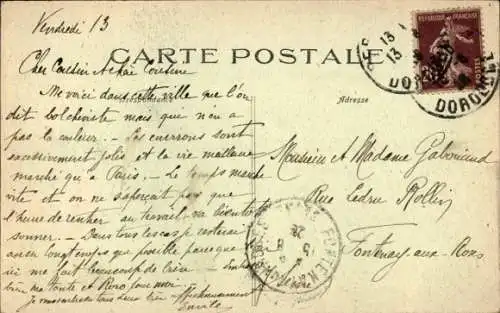 Vendredi 13
CARTE POSTALE
Correspondance
Adresse
Cher Cousin et chère Cousine
Me voici dans cette ville que l'on
dit bolcheviste mais que n'en a
pas la couleur. - Les environs sont
excessivement jolis et la vie meilleure
marché qu'à Paris. Le temps marche
vite et on ne s'aperçoit pas que
l'heure de rentrer au travail va bientôt
sonner. - Dans tous les cas
aussi longtemps que possible parce que
me fait beaucoup de bien.
bien ma tante et Roro pour moi.
Je vous embrasse tous deux bien affectueusement
Monsieur et Madame Gabouriaud
Rue Ledru Rollin
Fontenay-aux-Roses
REPUBLIQUE FRANÇAISE
POSTES
13
DORDOGNE
13
DORDOGNE
FONTENAY